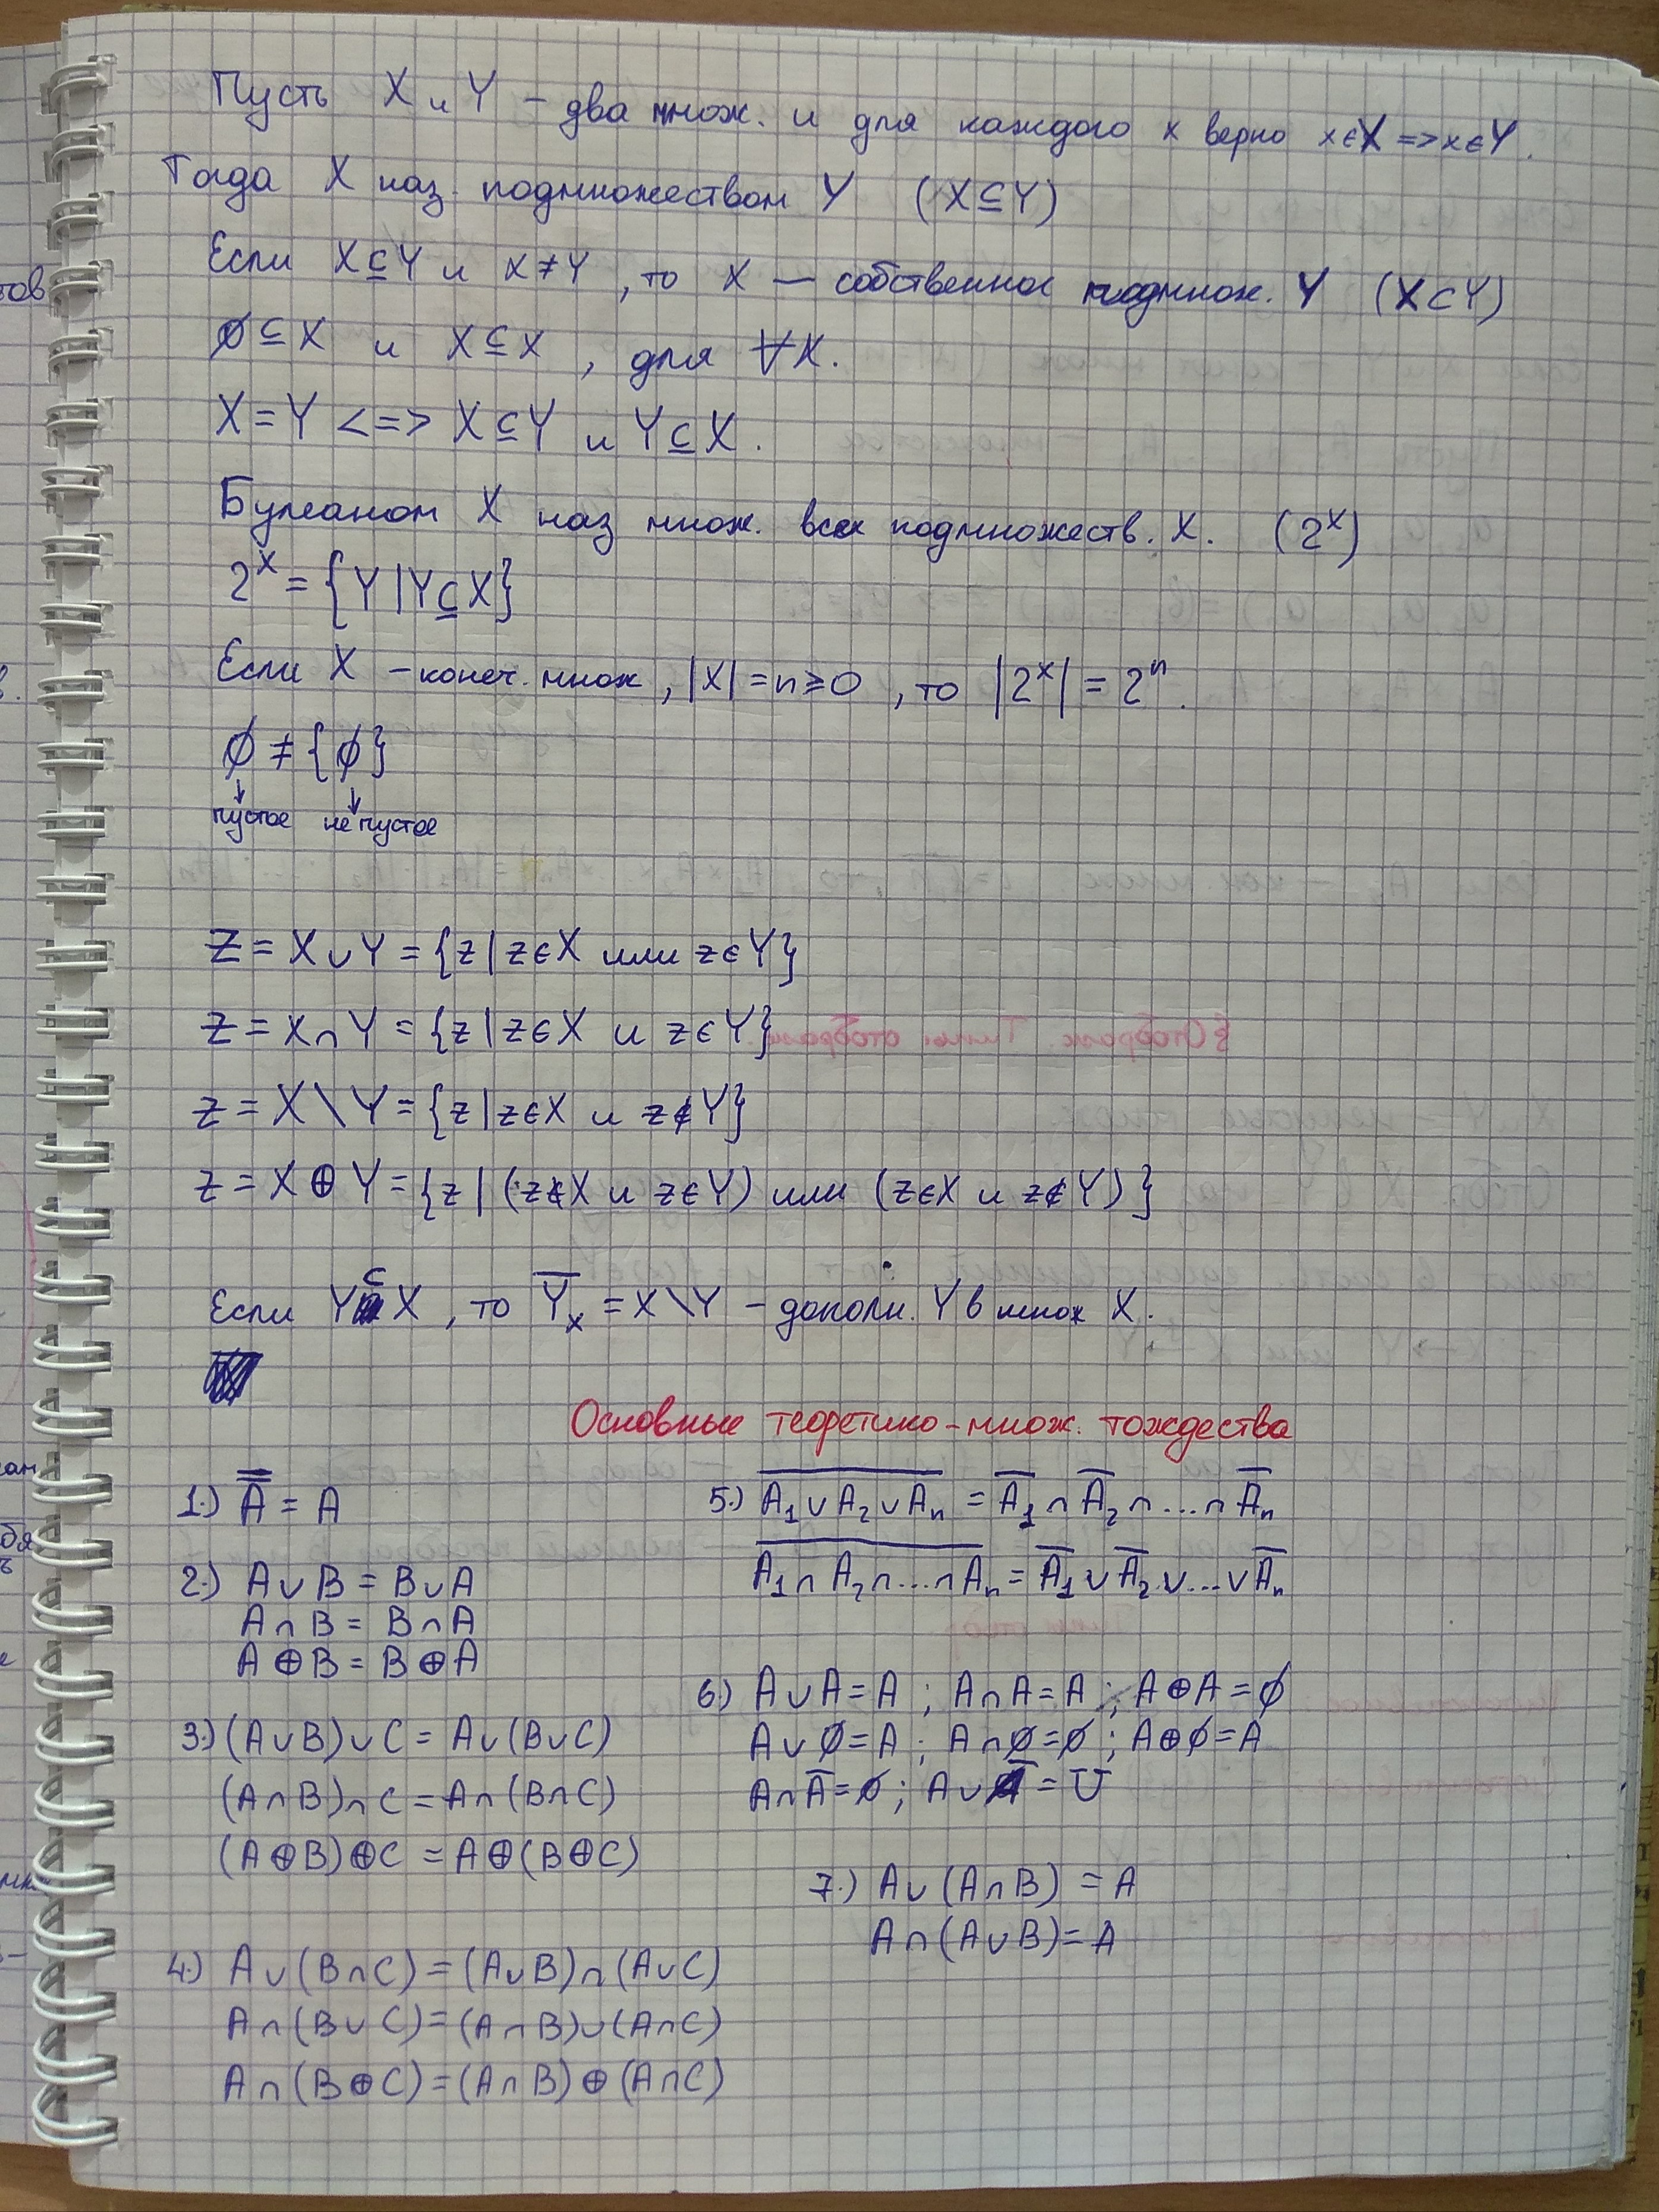 Пусть X и Y – два множ. и для каждого x верно x∈X => x∈Y.
Тогда X наз. подмножеством Y (X⊆Y)
Если X⊆Y и X≠Y, то X — собственное подмнож. Y (X⊂Y)
∅⊆X и X⊆X, для ∀X.
X=Y <=> X⊆Y и Y⊆X.
Булеаном X наз множ. всех подмножеств. X. (2^X)
2^X = {Y|Y⊆X}
Если X – конеч. множ, |X|=n≥0, то |2^X| = 2^n.
∅ ≠ {∅}
↓ ↓
пустое не пустое
Z = X∪Y = {z|z∈X или z∈Y}
Z = X∩Y = {z|z∈X и z∈Y}
Z = X\Y = {z|z∈X и z∉Y}
Z = X⊕Y = {z|(z∉X и z∈Y) или (z∈X и z∉Y)}
Если Y⊂X, то Y̅_X = X\Y – дополн. Y в множ X.
Основные теоретико-множ. тождества
1.) A̿ = A
2.) A∪B = B∪A
A∩B = B∩A
A⊕B = B⊕A
3.) (A∪B)∪C = A∪(B∪C)
(A∩B)∩C = A∩(B∩C)
(A⊕B)⊕C = A⊕(B⊕C)
4.) A∪(B∩C) = (A∪B)∩(A∪C)
A∩(B∪C) = (A∩B)∪(A∩C)
A∩(B⊕C) = (A∩B)⊕(A∩C)
5.) A̅₁̅ ̅∪̅ ̅A̅₂̅ ̅∪̅ ̅A̅ₙ̅ = A̅₁ ∩ A̅₂ ∩ ... ∩ A̅ₙ
A̅₁̅ ̅∩̅ ̅A̅₂̅ ̅∩̅ ̅.̅.̅.̅ ̅∩̅ ̅A̅ₙ̅ = A̅₁ ∪ A̅₂ ∪ ... ∪ A̅ₙ
6.) A∪A=A; A∩A=A; A⊕A=∅
A∪∅=A; A∩∅=∅; A⊕∅=A
A∩A̅=∅; A∪A̅=U
7.) A∪(A∩B) = A
A∩(A∪B) = A